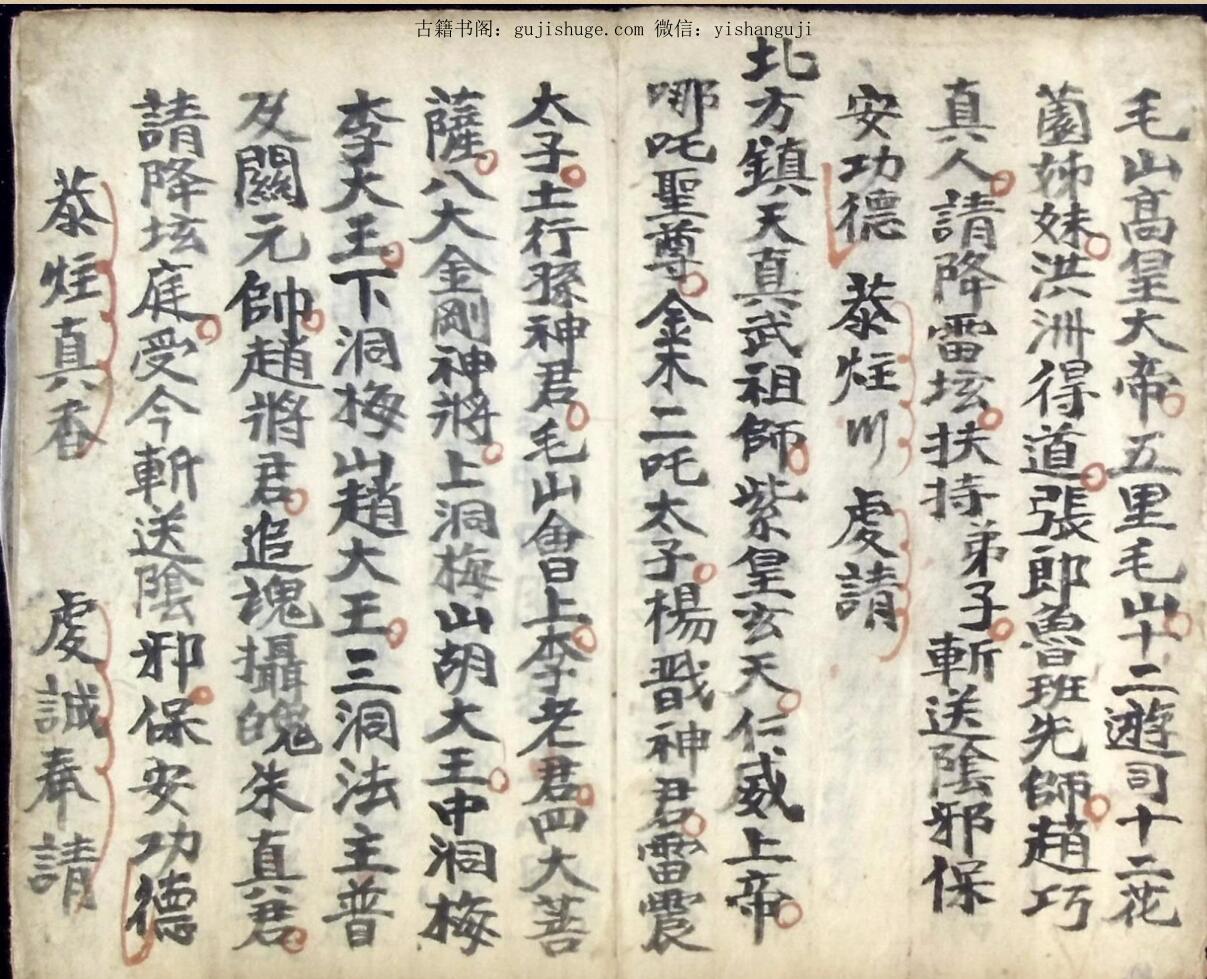 古籍书阁：gujishuge.com 微信：yishanguji
毛山高皇大帝五里毛山十二遊司十二花
薗姊妹洪洲得道張郎魯班先師趙巧
真人請降雷坛扶持弟子斬送隂邪保
安功德 恭炷川 虔請
北方鎮天真武祖師紫皇玄天仁威上帝
哪吒聖尊金木二吒太子楊戩神君雷震
太子土行孫神君毛山會上李老君四大菩
薩八大金剛神將上洞梅山胡大王中洞梅
李大王下洞梅山趙大王三洞法主普
及關元帥趙將君追魂攝魄朱真君
請降坛庭受今斬送隂邪保安功德
恭炷真香 虔誠奉請